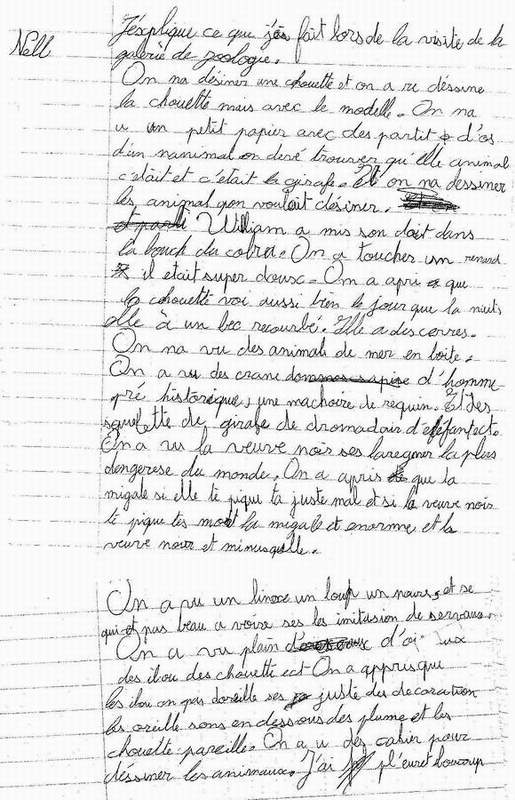 Nell
J'explique ce que j'ês fait lors de la visite de la
galerie de zoologie.
On na désiner une chouette et on a ru déssine
la chouette mais avec le modelle. On na
u un petit papier avec des partit d'os
d'un nanimal on devé trouver qu'elle animal
c'était et c'était la girafe. Et on na dessiner
les animal qon voulait désiner.
et parti William a mis son doit dans
la bouch du cobra. On a toucher un renard
il était super doux. On a apri que
la chouette voi aussi bien le jour que la nuit
elle à un bec recourbé. Elle a des cerres.
On na vu des animal de mer en boite.
On a vu des crane d'homme
pré historique, une machoire de requin. Et des
squelette de girafe de dromadair d'eléfantect.
On a vu la veuve noir ses laregner la plus
dengerese du monde. On a apris que la
migale si elle te pique ta juste mal et si la veuve noir
te pique tes mort la migale et enorme et la
veuve noir et minusqulle.
On a vu un linxe un loup un nours, et se
qui et pas beau a voir ses les imitasion de servaux.
On a vu plain d'oi aux
des ilou des chouette ect On a appris que
les ilou on pas doreille ses juste des decoration
les oreille sons en dessous des plume et les
chouette pareille. On a u des cahier pour
déssiner les animaux. J'ai pl'euret boucoup